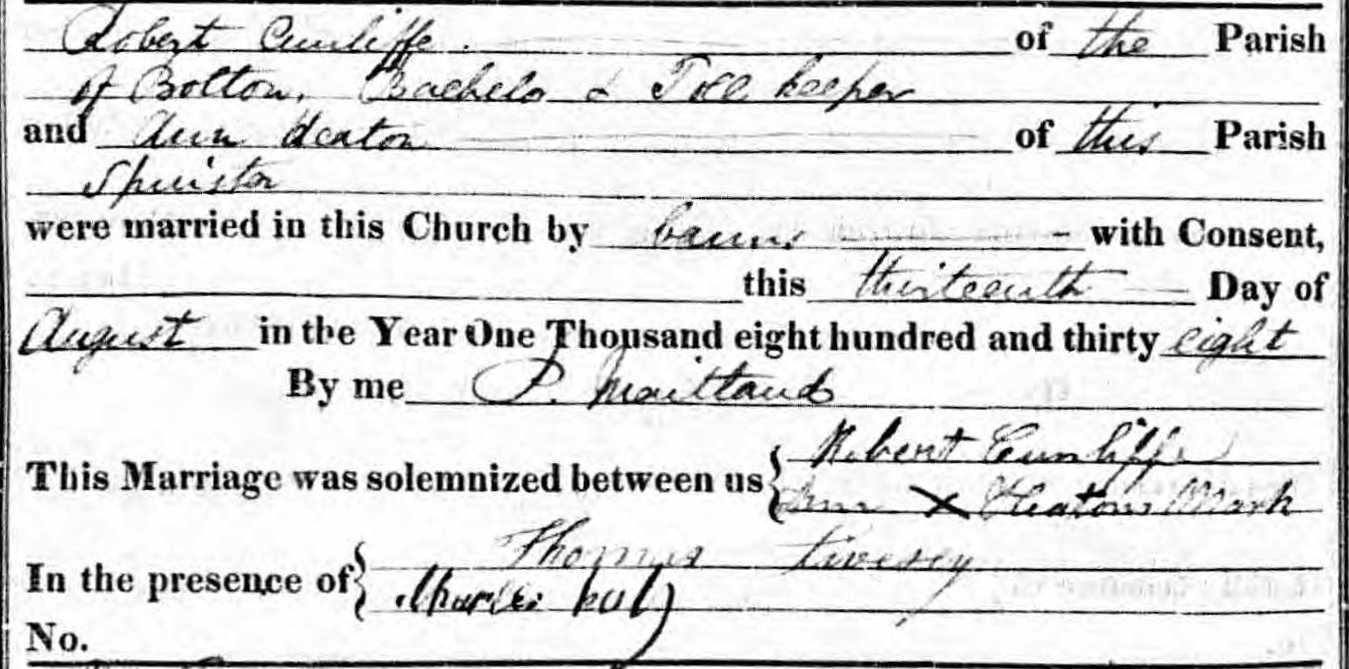 Robert Cunliffe of the Parish
of Bolton, Bachelo & Toll keeper
and Ann Heaton of this Parish
Spinster
were married in this Church by banns with Consent,
this thirteenth Day of
August in the Year One Thousand eight hundred and thirty eight
By me P. Maitland
This Marriage was solemnized between us { Robert Cunliffe
Ann X Heatons Mark
In the presence of { Thomas Livesey
Charles
No.